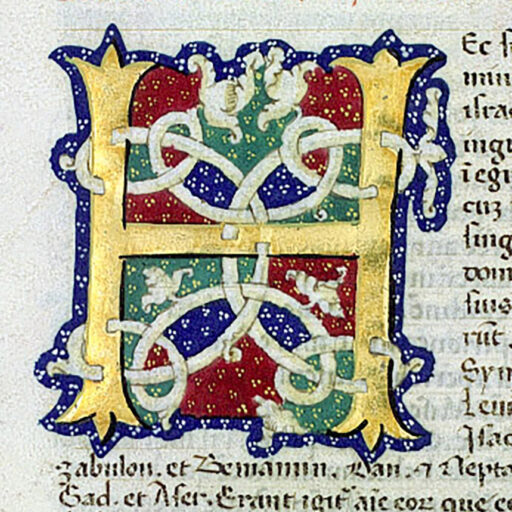 HEc
isra
ingr
ī egi
cuz
sing
dom
suis
rūt
Sym
Leui
Isac
zabulon. et Beniamin. Dan. ⁊ Nepta
Gad. et Aser. Erant igit' aīe eoꝝ que